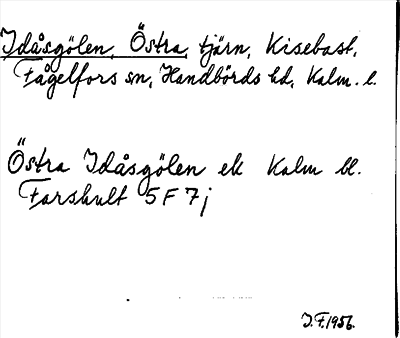 Idåsgölen, Östra, tjärn, Kisebast,
Fågelfors sn, Handbörds hd, Kalm. l.
Östra Idåsgölen ek Kalm bl.
Farshult 5 F 7 j
J.F. 1956.